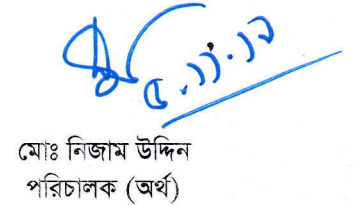 ৫.১১.১৯
মোঃ নিজাম উদ্দিন
পরিচালক (অর্থ)